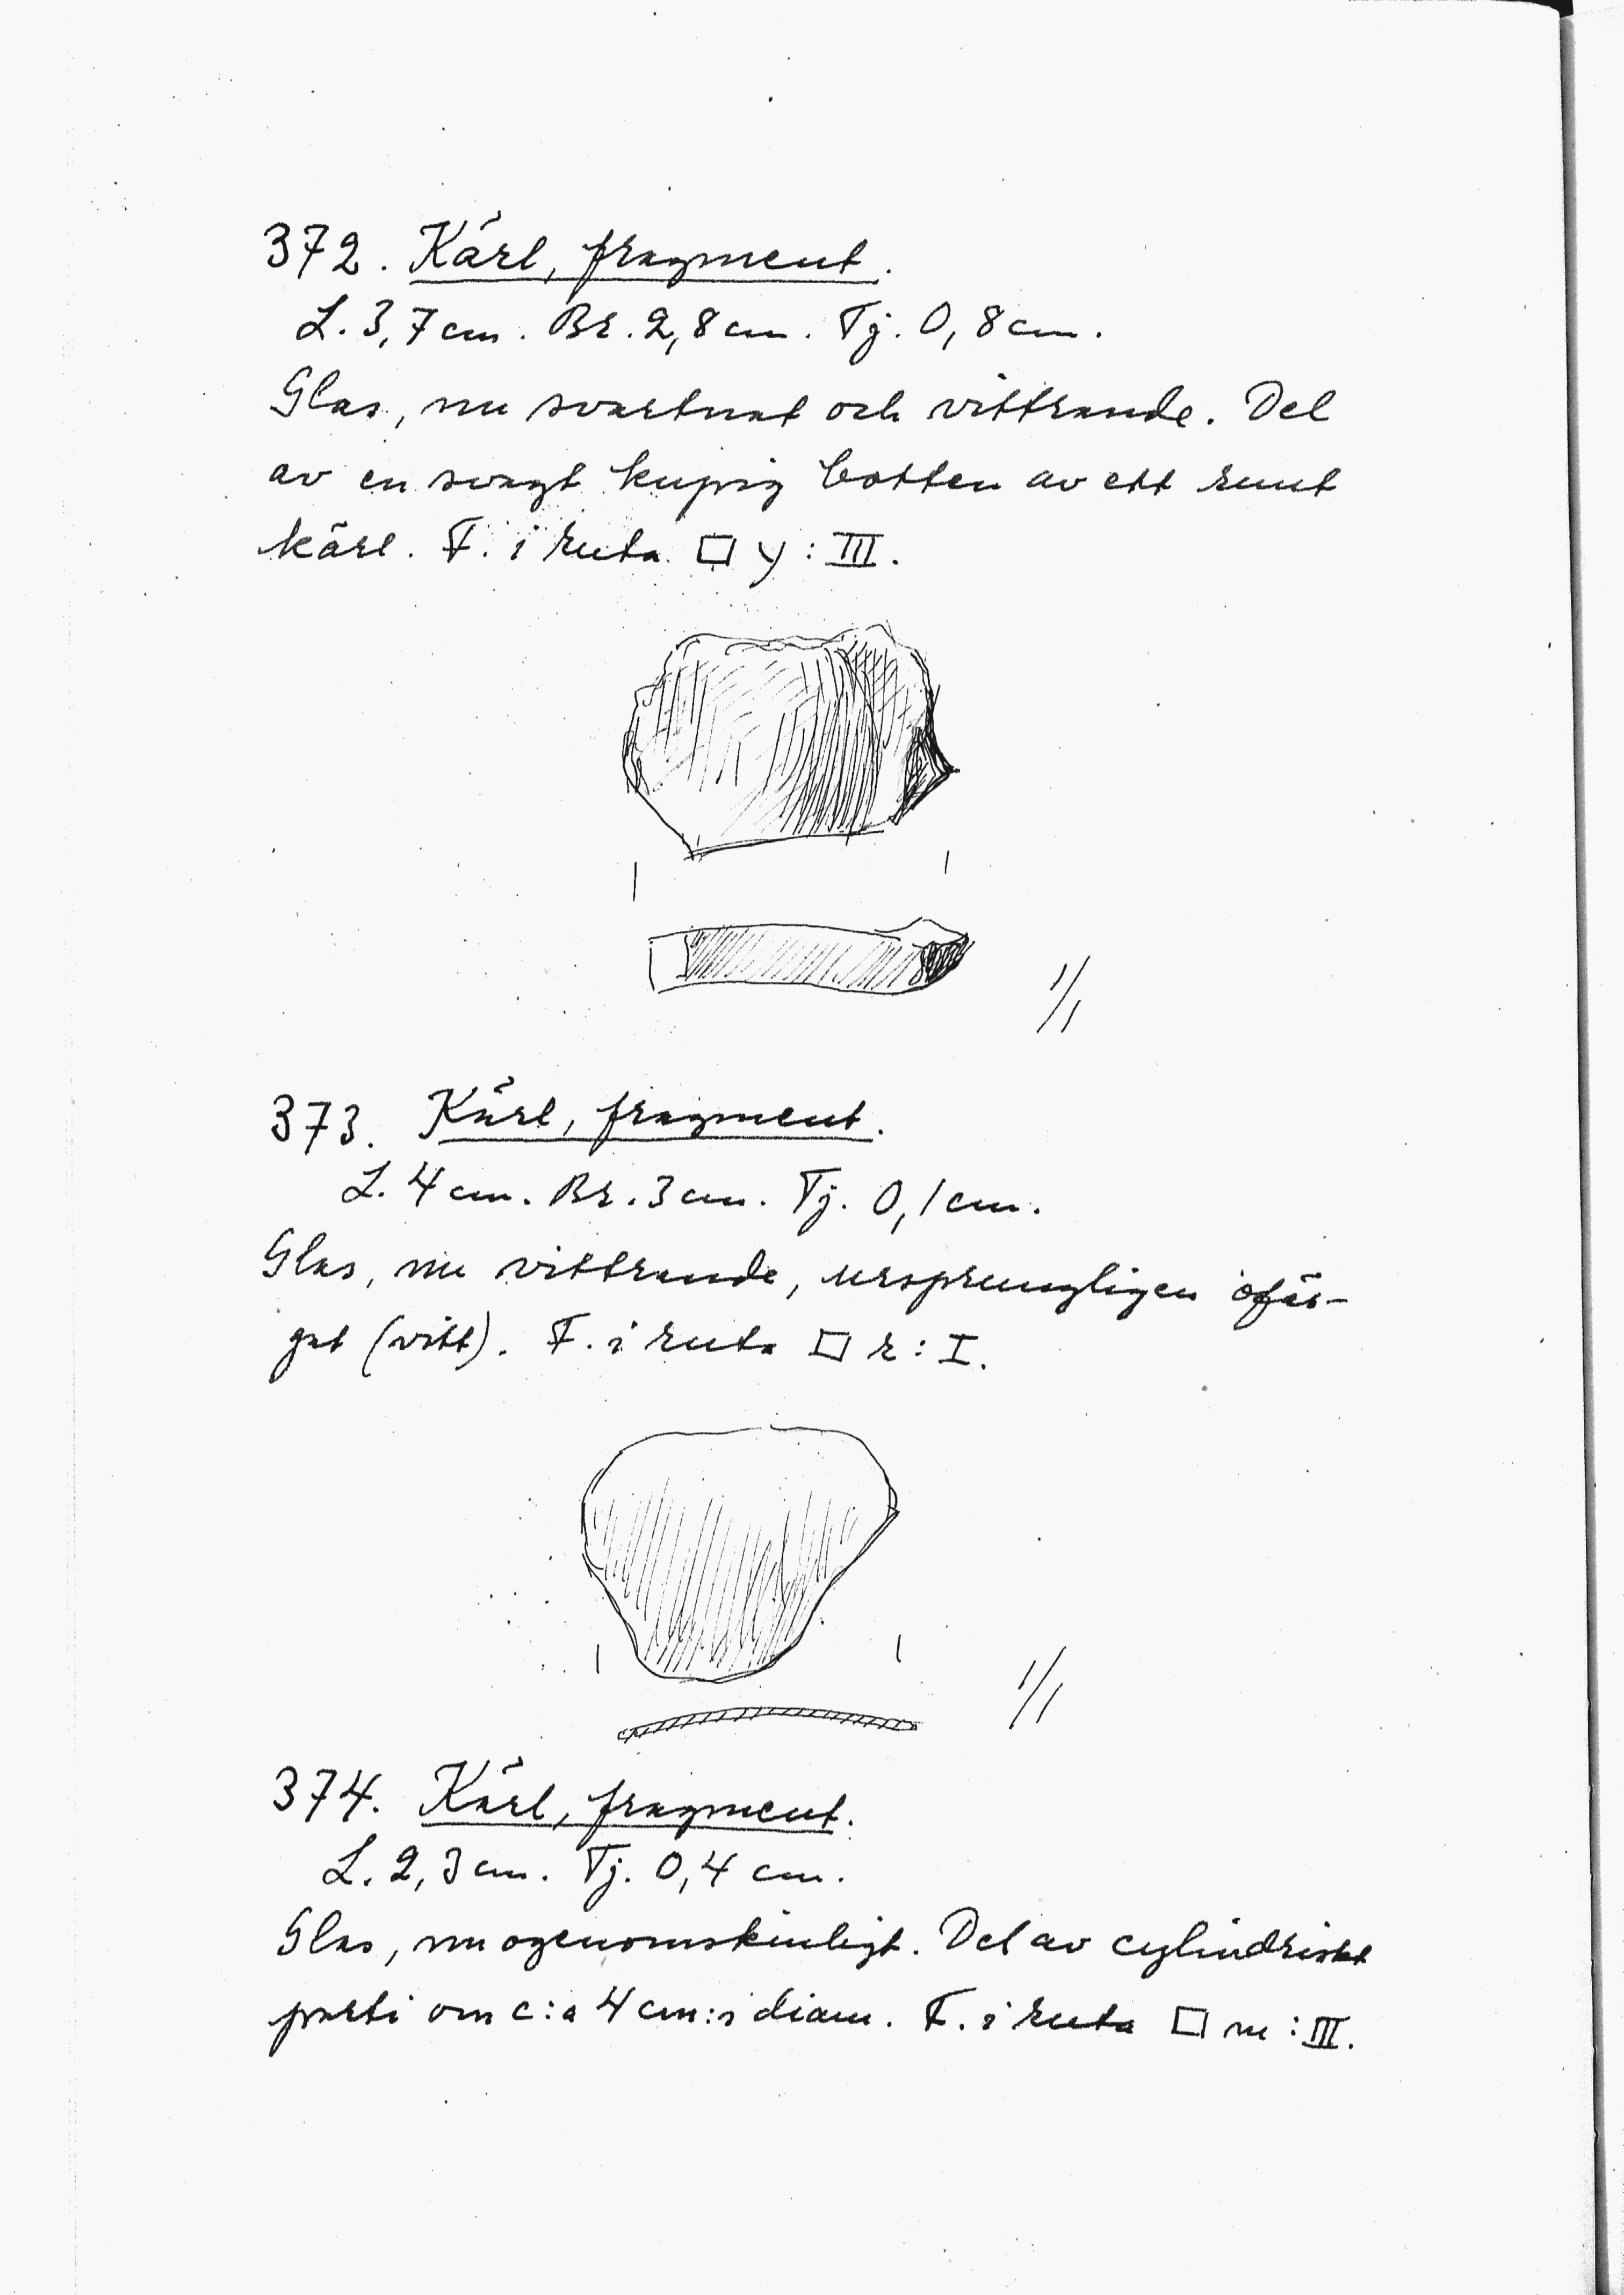 372. Kärl, fragment.
L. 3,7 cm. Br. 2,8 cm. Tj. 0,8 cm.
Glas, nu svartnat och vittrande. Del
av en svagt kupig botten av ett runt
kärl. F. i ruta □ y : III.
1/1
373. Kärl, fragment.
L. 4 cm. Br. 3 cm. Tj. 0,1 cm.
Glas, nu vittrande, ursprungligen ofär-
gat (vitt). F. i ruta □ r : I.
1/1
374. Kärl, fragment.
L. 2,3 cm. Tj. 0,4 cm.
Glas, nu ogenomskinligt. Del av cylindriskt
parti om c:a 4 cm:s diam. F. i ruta □ m : III.